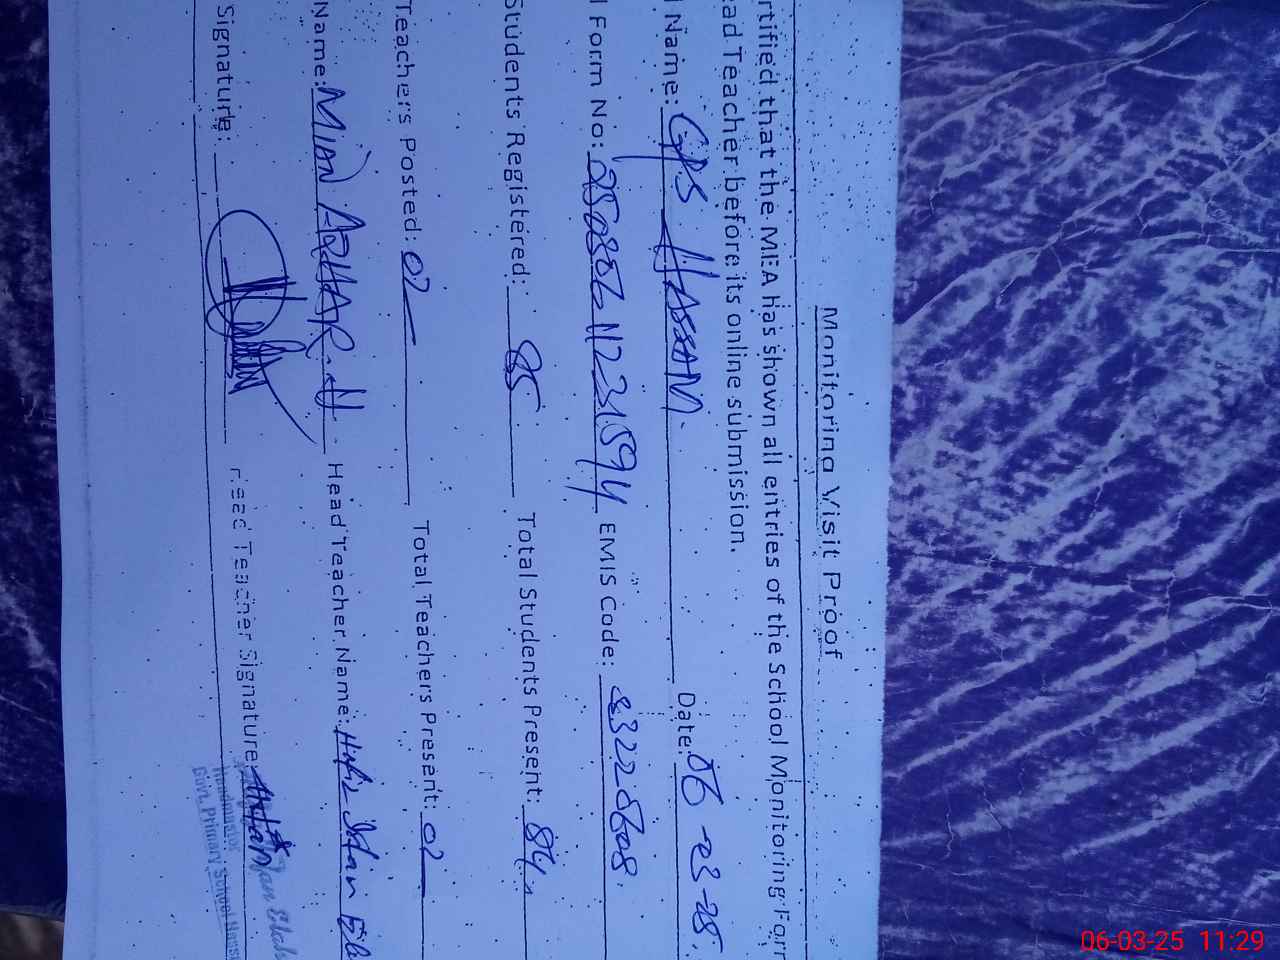 Monitoring Visit Proof
rtified that the MEA has shown all entries of the School Monitoring Form
ead Teacher before its online submission.
l Name: GPS HASSAN. Date: 06-03-25.
l Form No: EMIS Code:
Students Registered: 85 Total Students Present: 84
Teachers Posted: 02 Total Teachers Present: 02
Name: MIAN AZHAR. H. Head Teacher Name: Hafiz
Signature: Head Teacher Signature:
Headmaster
Govt. Primary School Hassa
06-03-25 11:29